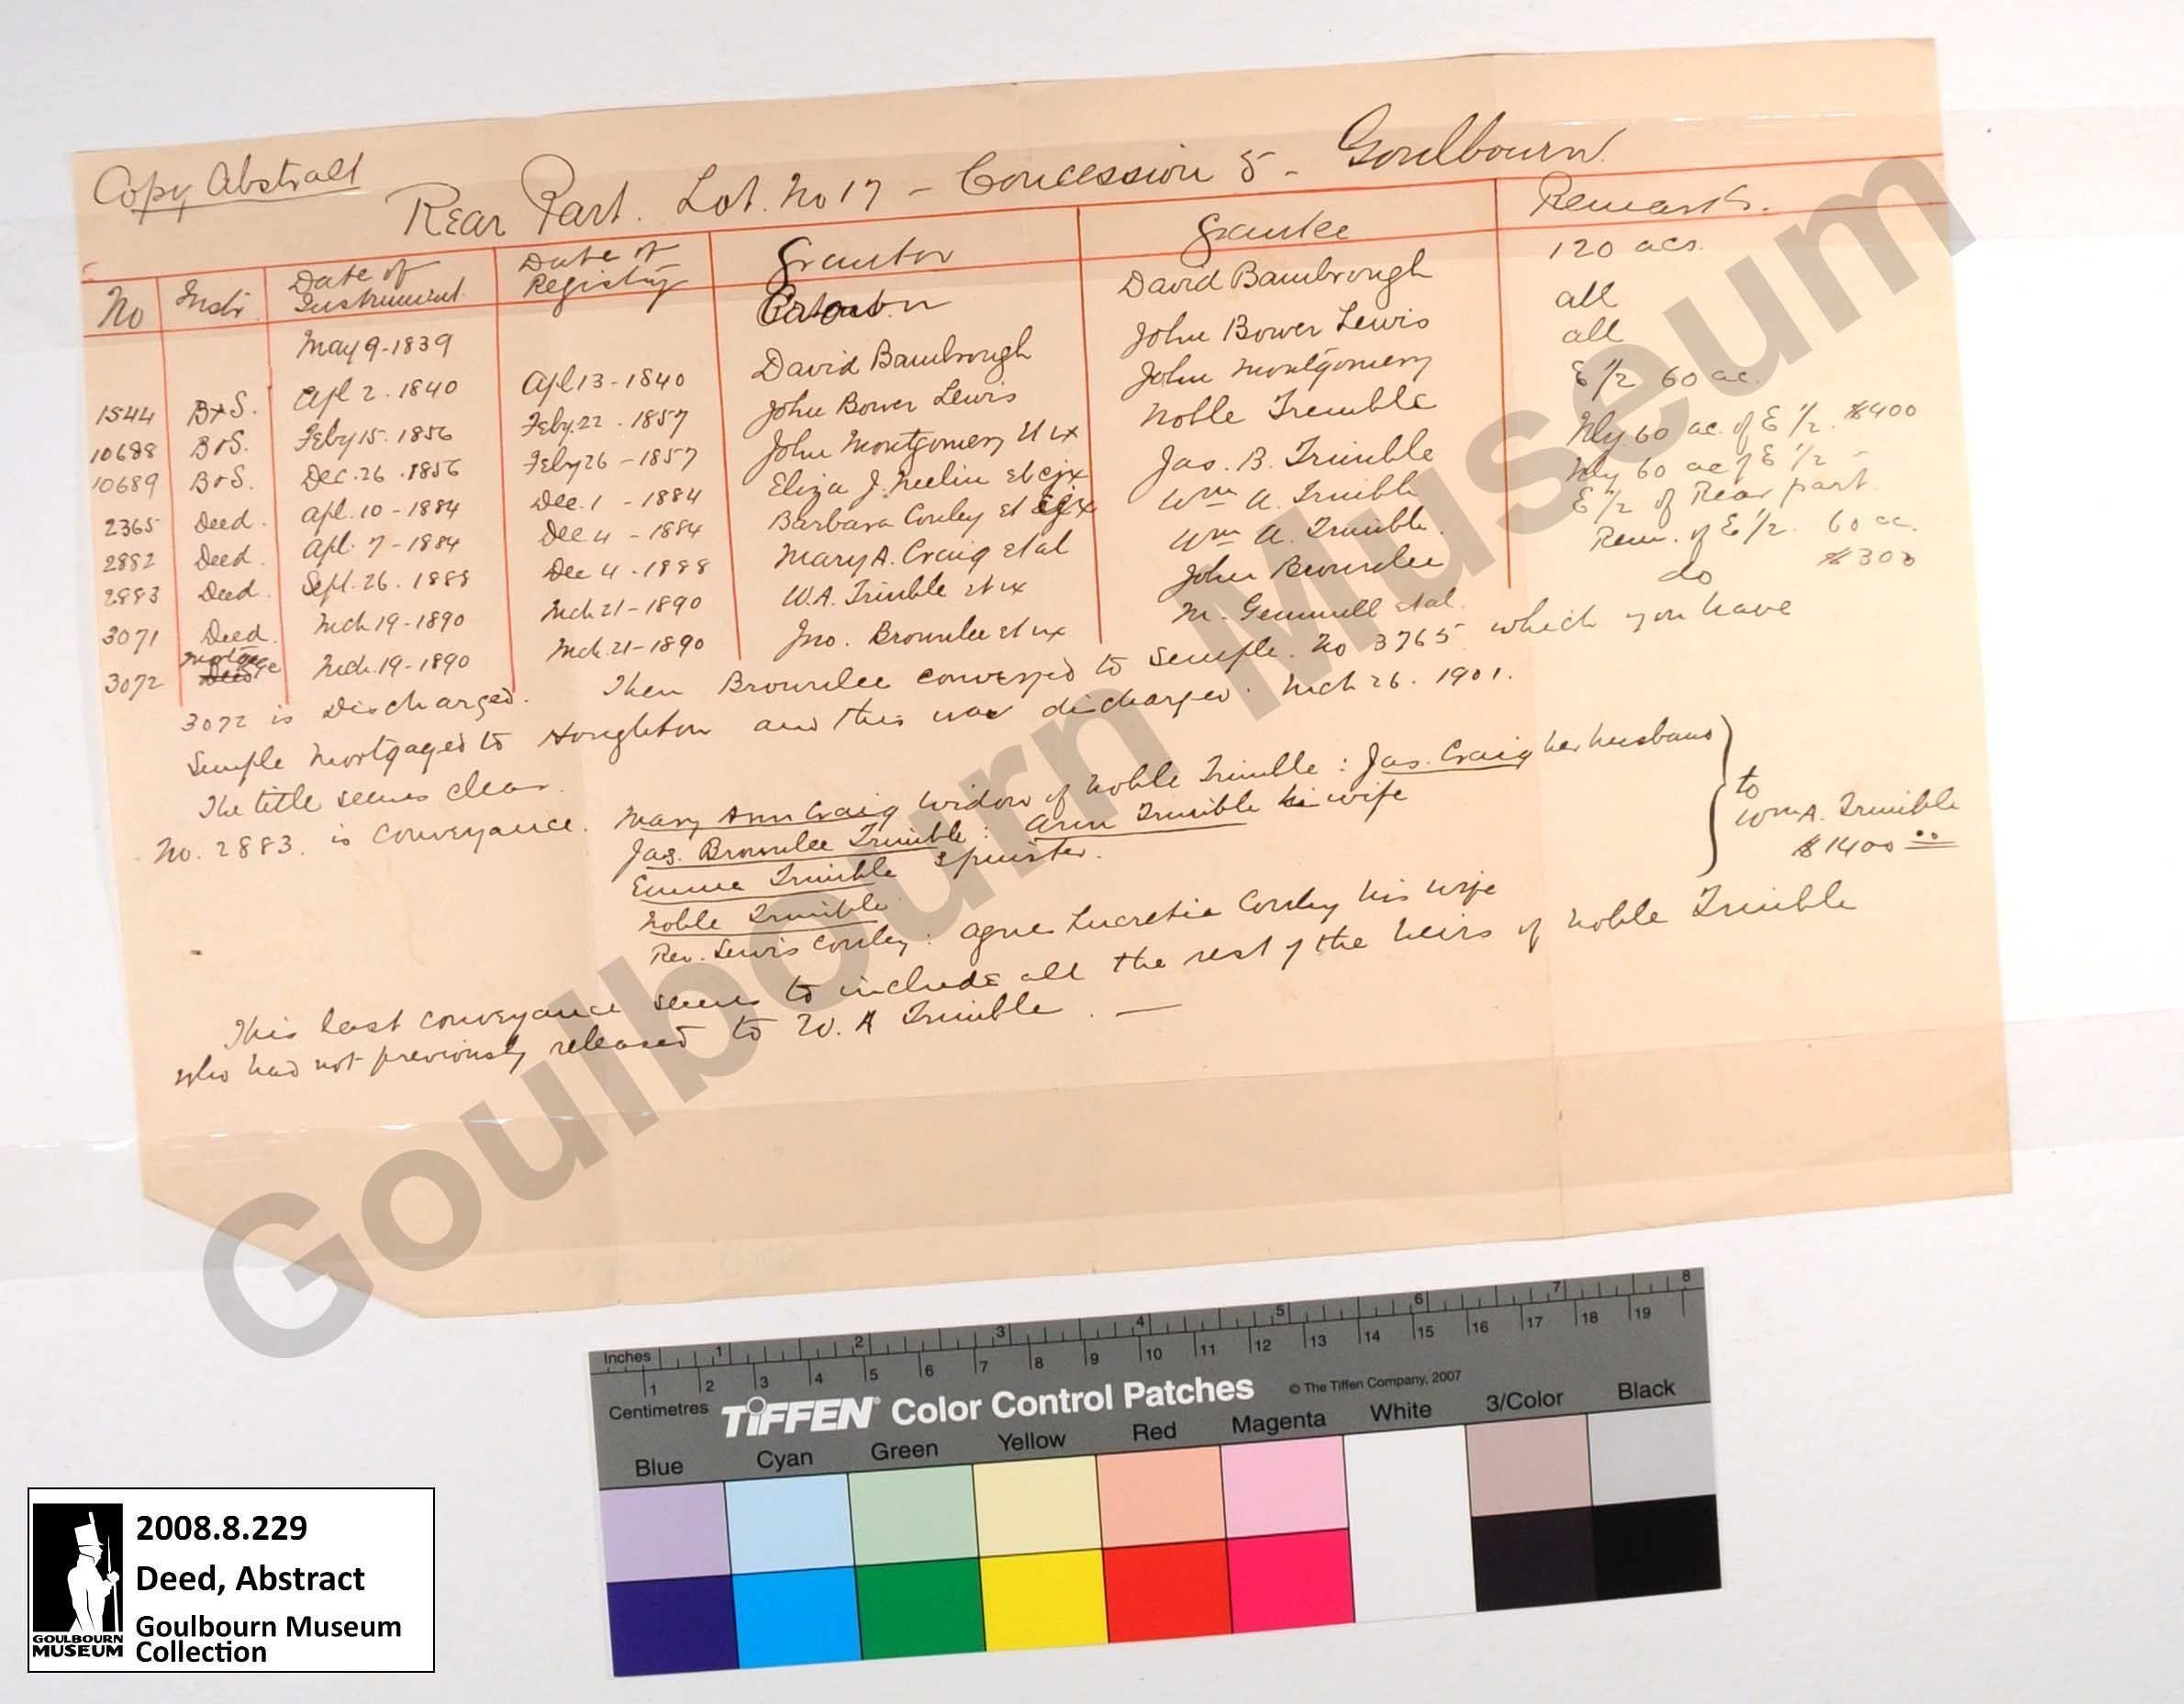 Copy Abstract
Rear Part. Lot. No 17 - Concession 5 - Goulbourn.
No Instr. Date of Instrument. Date of Registry Grantor Grantee Remarks.
May 9-1839 David Bambrough 120 acs.
1544 B+S. Apl 2. 1840 Apl 13-1840 David Bambrough John Bower Lewis all
10688 B+S. Feby 15. 1856 Feby. 22. 1857 John Bower Lewis John Montgomery all
10689 B+S. Dec. 26. 1856 Feby 26-1857 John Montgomery et ux Noble Tremble E 1/2 60 ac.
2365 Deed. Apl. 10-1884 Dec. 1-1884 Eliza J. Neelin et Jas. B. Trimble Nly 60 ac. of E 1/2. $400
2882 Deed. Apl. 7-1884 Dec 4-1884 Barbara Conley et Wm A. Trimble Nly 60 ac of E 1/2 -
2883 Deed. Sept. 26. 1888 Dec 4. 1888 Mary A. Craig et al Wm A. Trimble. E 1/2 of Rear part
3071 Deed. Mch 19-1890 Mch 21-1890 W.A. Trimble et ux John Brownlee Rem. of E 1/2. 60 ac.
3072 Mortgage Mch. 19-1890 Mch. 21-1890 Jno. Brownlee et ux M. Gemmill et al. do $300
3072 is Discharged. Then Brownlee conveyed to Semple. No 3765 which you have
Semple mortgaged to Houghton and this was discharged. Mch 26. 1901.
The title seems clear.
No. 2883. is conveyance. Mary Ann Craig widow of Noble Trimble: Jas. Craig her husband
Jas. Brownlee Trimble: Ann Trimble his wife
Emma Trimble spinster.
Noble Trimble
Rev. Lewis Conley: Agnes Lucretia Conley his wife
} to
Wm A. Trimble
$1400 00
This last conveyance seems to include all the rest of the heirs of Noble Trimble
who had not previously released to W. A Trimble. —
Goulbourn Museum
Inches 1 2 3 4 5 6 7 8
1 2 3 4 5 6 7 8 9 10 11 12 13 14 15 16 17 18 19
Centimetres TIFFEN® Color Control Patches © The Tiffen Company, 2007
Blue Cyan Green Yellow Red Magenta White 3/Color Black
2008.8.229
Deed, Abstract
Goulbourn Museum
Collection
GOULBOURN
MUSEUM